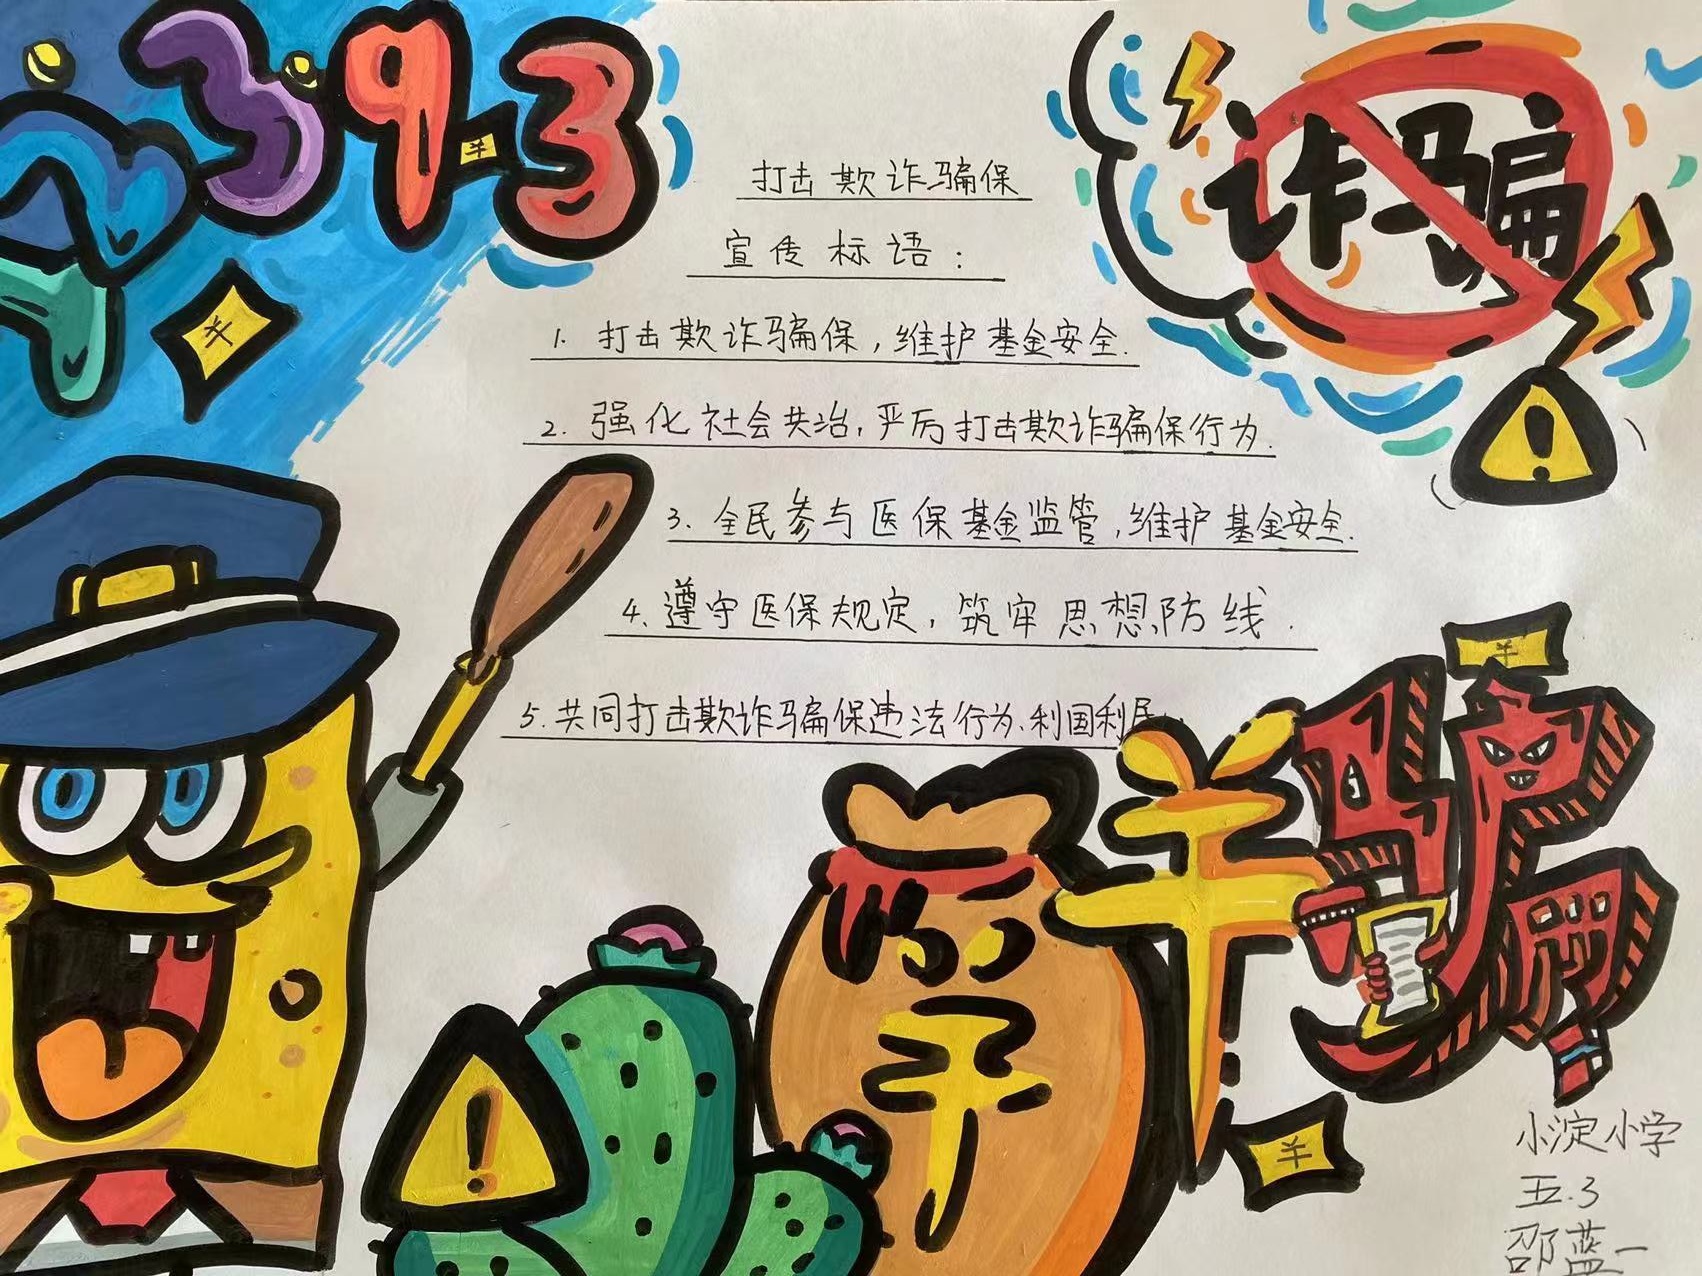 393
诈骗
打击欺诈骗保
宣传标语：
1. 打击欺诈骗保，维护基金安全.
2. 强化社会共治，严厉打击欺诈骗保行为.
3. 全民参与医保基金监管，维护基金安全.
4. 遵守医保规定，筑牢思想防线.
5. 共同打击欺诈骗保违法行为、利国利民..
骗
小淀小学
五.3
邵蓝一